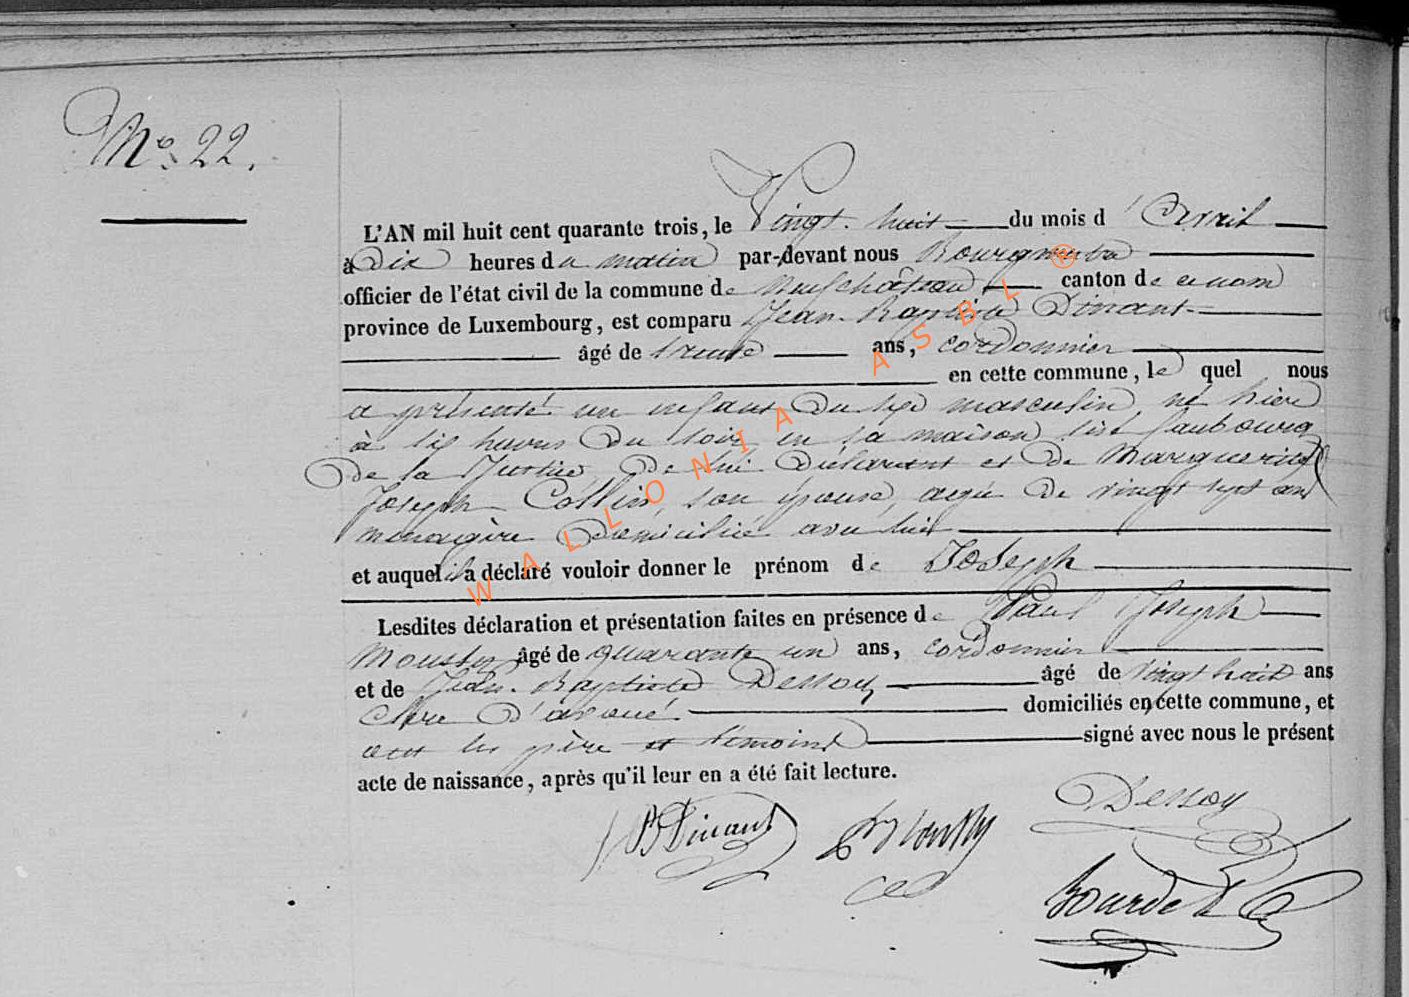 No. 22.
L'AN mil huit cent quarante trois, le Vingt-huit du mois d'Avril
à dix heures du matin par-devant nous Bourgmestre
officier de l'état civil de la commune de Neufchâteau canton de ce nom
province de Luxembourg, est comparu Jean-Baptiste Dinant
âgé de trente ans, cordonnier
en cette commune, le quel nous
a présenté un enfant du sexe masculin, né hier
à six heures du soir en sa maison sise faubourg
de la Justice, de lui déclarant et de Marguerite
Joseph Collin, son épouse, agée de vingt sept ans
ménagère domiciliée avec lui
et auquel il a déclaré vouloir donner le prénom de Joseph
Lesdites déclaration et présentation faites en présence de Paul Joseph
Mousty âgé de quarante un ans, cordonnier
et de Jean-Baptiste Dessoy âgé de vingt huit ans
clerc d'avoué domiciliés en cette commune, et
ont les père et témoins signé avec nous le présent
acte de naissance, après qu'il leur en a été fait lecture.
JB Dinant
Mousty
Dessoy
WALLONIA ASBL ®